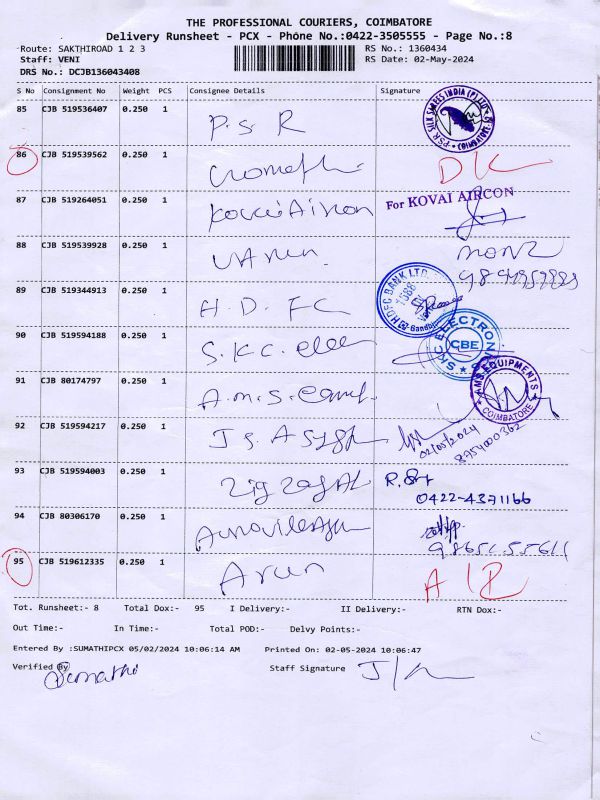 THE PROFESSIONAL COURIERS, COIMBATORE
Delivery Runsheet - PCX - Phone No.:0422-3505555 - Page No.:8
Route: SAKTHIROAD 1 2 3 RS No.: 1360434
Staff: VENI RS Date: 02-May-2024
DRS No.: DCJB136043408
S No Consignment No Weight PCS Consignee Details Signature
85 CJB 519536407 0.250 1 P.S R
86 CJB 519539562 0.250 1 DK
87 CJB 519264051 0.250 1 Kovai Aircon For KOVAI AIRCON
88 CJB 519539928 0.250 1
89 CJB 519344913 0.250 1 H D. FC HDFC BANK LTD.
90 CJB 519594188 0.250 1 S.K.C. elec SKC ELECTRON CBE
91 CJB 80174797 0.250 1 A.M.S. AMS EQUIPMENTS COIMBATORE
92 CJB 519594217 0.250 1 02/05/2024
93 CJB 519594003 0.250 1 Zig Zag 0422-4371166
94 CJB 80306170 0.250 1
95 CJB 519612335 0.250 1 Arun
Tot. Runsheet:- 8 Total Dox:- 95 I Delivery:- II Delivery:- RTN Dox:-
Out Time:- In Time:- Total POD:- Delvy Points:-
Entered By :SUMATHIPCX 05/02/2024 10:06:14 AM Printed On: 02-05-2024 10:06:47
Verified By Staff Signature
Sumathi